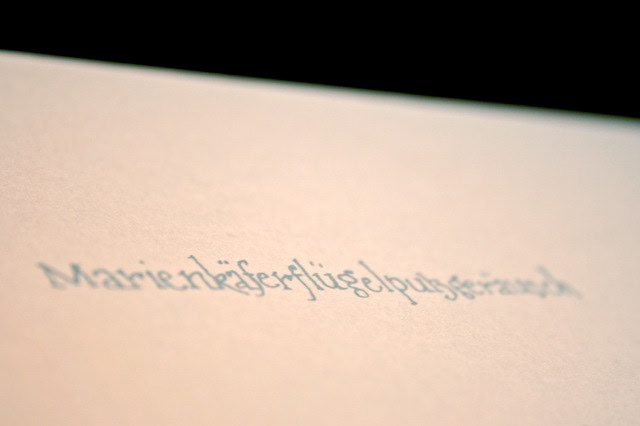 Marienkäferflügelputzgeräusch